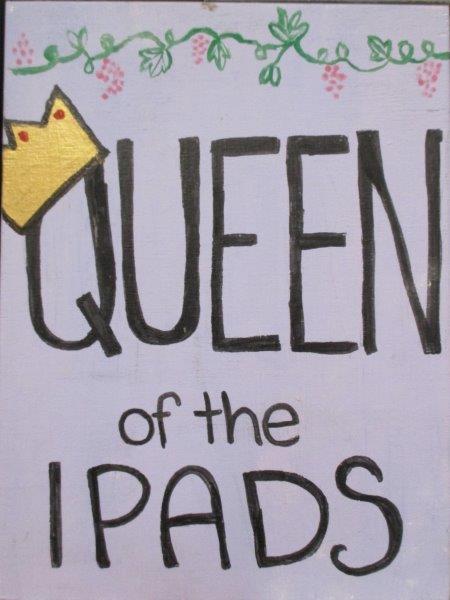 QUEEN
of the
IPADS